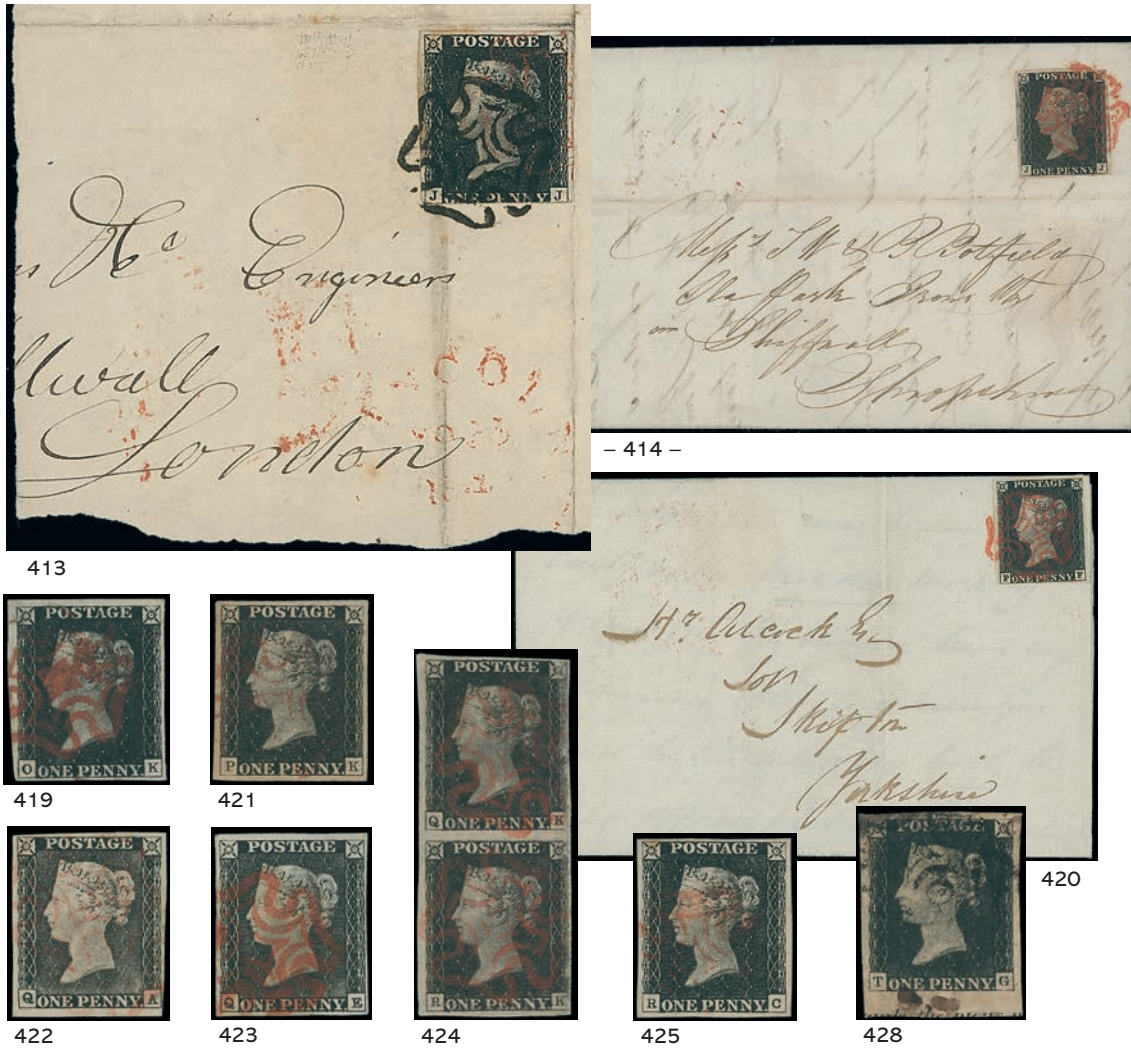 POSTAGE
J ONE PENNY J
& Co Engineers
llwall
London
413
POSTAGE
J ONE PENNY J
Messrs T W & B Botfield
Shiffnall
Shropshire
– 414 –
POSTAGE
F ONE PENNY F
Skipton
Yorkshire
420
POSTAGE
O ONE PENNY. K
419
POSTAGE
P ONE PENNY. K
421
POSTAGE
Q ONE PENNY. K
POSTAGE
R ONE PENNY. K
424
POSTAGE
Q ONE PENNY. A
422
POSTAGE
Q ONE PENNY. E
423
POSTAGE
R ONE PENNY. C
425
POSTAGE
T ONE PENNY. G
428